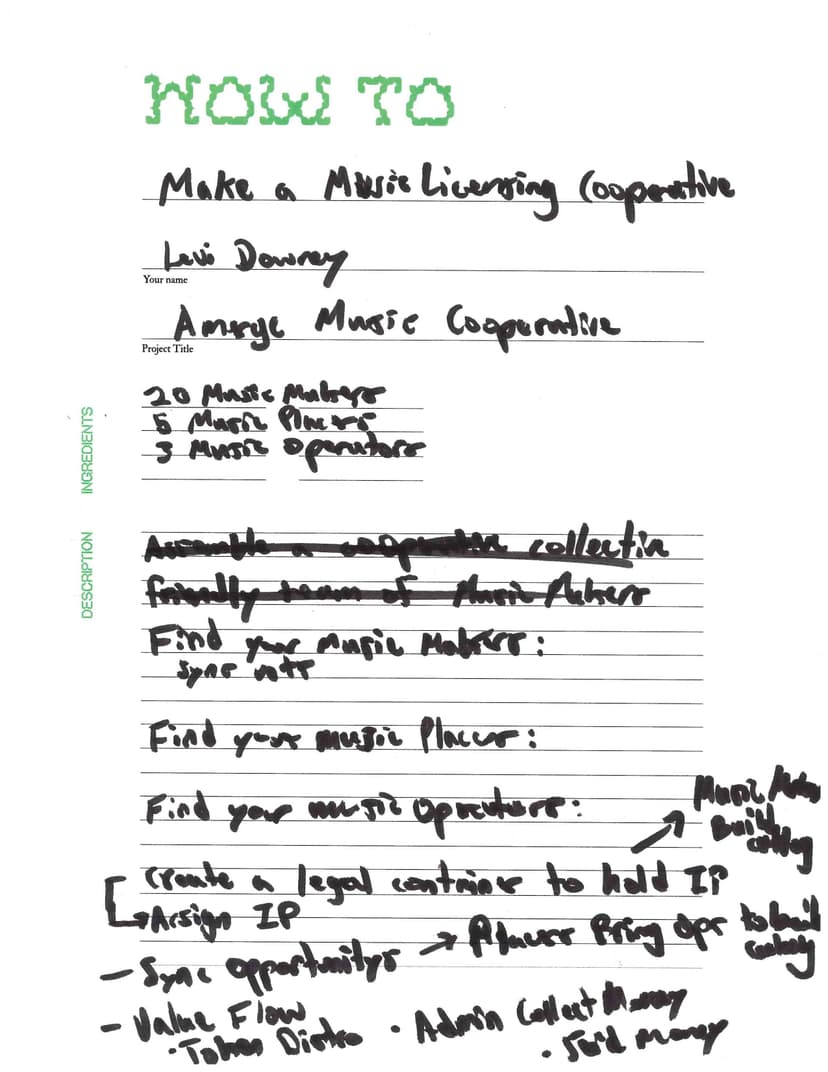 HOW TO
Make a Music Licensing Cooperative
Levi Downey
Your name
Amerge Music Cooperative
Project Title
20 Music Makers
5 Music Placers
3 Music Operators
INGREDIENTS
DESCRIPTION
Assemble a cooperative collective
friendly team of Music Makers
Find your Music Makers:
sync
Find your music Placers:
Find your music Operators:
Music
Build
catalog
Create a legal container to hold IP
Assign IP
Placers Bring Ops to build
- Sync Opportunitys
- Value Flow
· Token Distro
· Admin Collect Money
· Send money